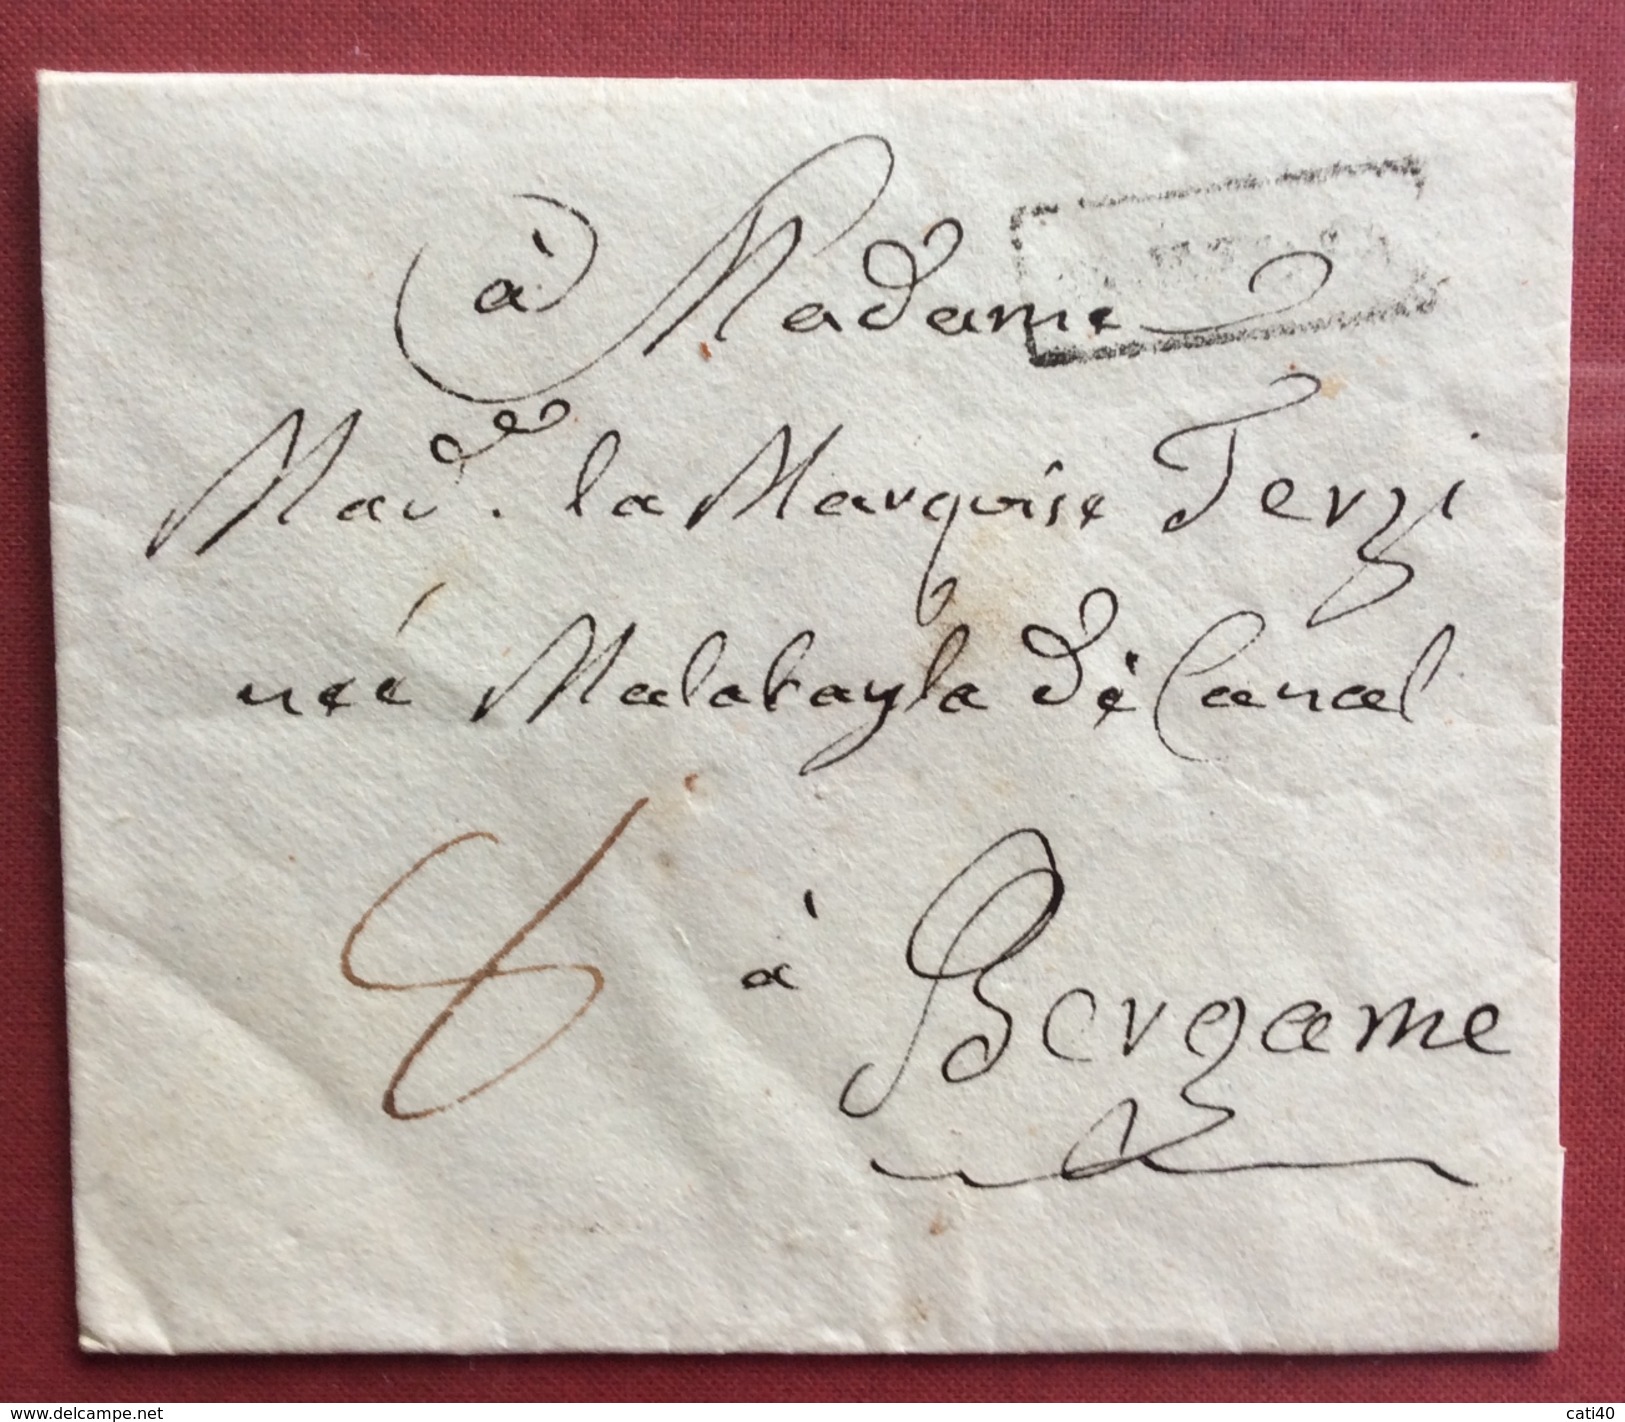 à Madame
Mad. la Marquise Terzi
née Malabayla de Canal
à Bergame
www.delcampe.net
cati40